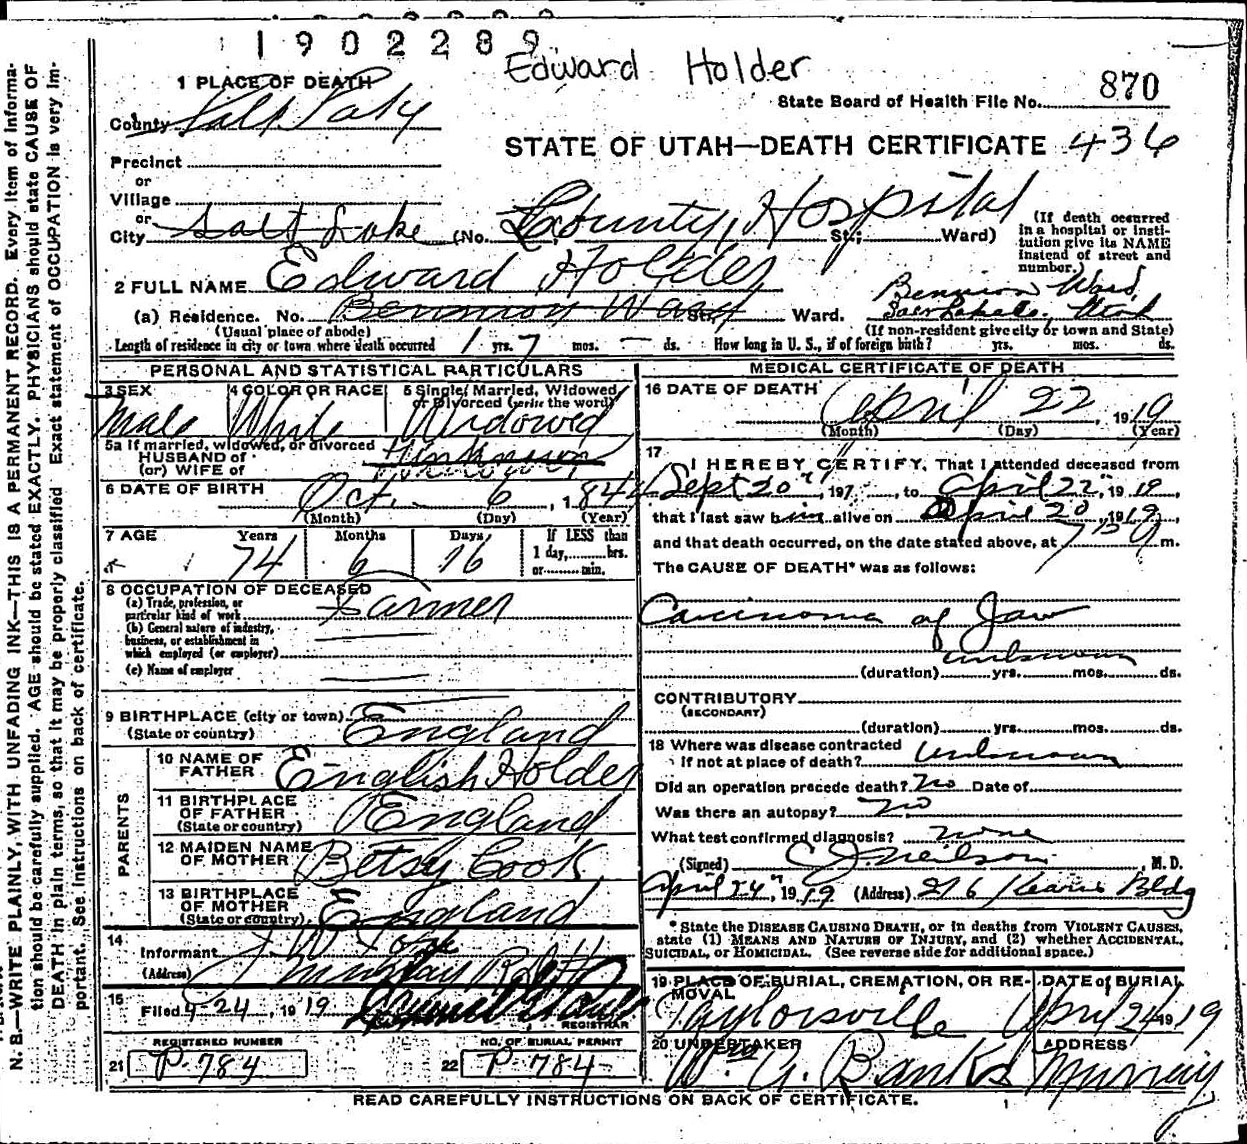 1902289
Edward Holder
1 PLACE OF DEATH
State Board of Health File No. 870
County Salt Lake
STATE OF UTAH—DEATH CERTIFICATE 436
Precinct
or
Village
or
City Salt Lake (No. County Hospital St.; Ward)
(If death occurred in a hospital or institution give its NAME instead of street and number.)
2 FULL NAME Edward Holder
(a) Residence. No. Bennion Ward St., Ward. Bennion Ward, Utah
(Usual place of abode)
(If non-resident give city or town and State)
Length of residence in city or town where death occurred 1 yrs. 7 mos. — ds. How long in U. S., if of foreign birth? yrs. mos. ds.
PERSONAL AND STATISTICAL PARTICULARS
3 SEX Male
4 COLOR OR RACE White
5 Single, Married, Widowed or Divorced (write the word) Widowed
5a If married, widowed, or divorced
HUSBAND of
(or) WIFE of Unknown
6 DATE OF BIRTH Oct. 6, 1844
(Month) (Day) (Year)
7 AGE Years 74 Months 6 Days 16 If LESS than 1 day, hrs. or min.
8 OCCUPATION OF DECEASED
(a) Trade, profession, or particular kind of work Farmer
(b) General nature of industry, business, or establishment in which employed (or employer)
(c) Name of employer
9 BIRTHPLACE (city or town)
(State or country) England
PARENTS
10 NAME OF FATHER English Holder
11 BIRTHPLACE OF FATHER (State or country) England
12 MAIDEN NAME OF MOTHER Betsy Cook
13 BIRTHPLACE OF MOTHER (State or country) England
14 Informant J. W.
(Address)
15 Filed 4-24, 1919
REGISTRAR
REGISTERED NUMBER
21 P-784
NO. OF BURIAL PERMIT
22 P-784
MEDICAL CERTIFICATE OF DEATH
16 DATE OF DEATH April 22, 1919
(Month) (Day) (Year)
17
I HEREBY CERTIFY, That I attended deceased from
Sept 20", 197, to April 22", 1919,
that I last saw him alive on April 20, 1919,
and that death occurred, on the date stated above, at m.
The CAUSE OF DEATH* was as follows:
Carcinoma of Jaw
unknown
(duration) yrs. mos. ds.
CONTRIBUTORY
(SECONDARY)
(duration) yrs. mos. ds.
18 Where was disease contracted
if not at place of death? unknown
Did an operation precede death? No Date of
Was there an autopsy? No
What test confirmed diagnosis? none
(Signed) C J Neilson, M. D.
April 24", 1919 (Address) 276 Kearns Bldg
* State the DISEASE CAUSING DEATH, or in deaths from VIOLENT CAUSES, state (1) MEANS AND NATURE OF INJURY, and (2) whether ACCIDENTAL, SUICIDAL, or HOMICIDAL. (See reverse side for additional space.)
19 PLACE OF BURIAL, CREMATION, OR REMOVAL Taylorsville
DATE of BURIAL April 24 1919
20 UNDERTAKER Wm A. Banks
ADDRESS Murray
READ CAREFULLY INSTRUCTIONS ON BACK OF CERTIFICATE.
N. B.—WRITE PLAINLY, WITH UNFADING INK—THIS IS A PERMANENT RECORD. Every item of information should be carefully supplied. AGE should be stated EXACTLY. PHYSICIANS should state CAUSE OF DEATH in plain terms, so that it may be properly classified. Exact statement of OCCUPATION is very important. See instructions on back of certificate.